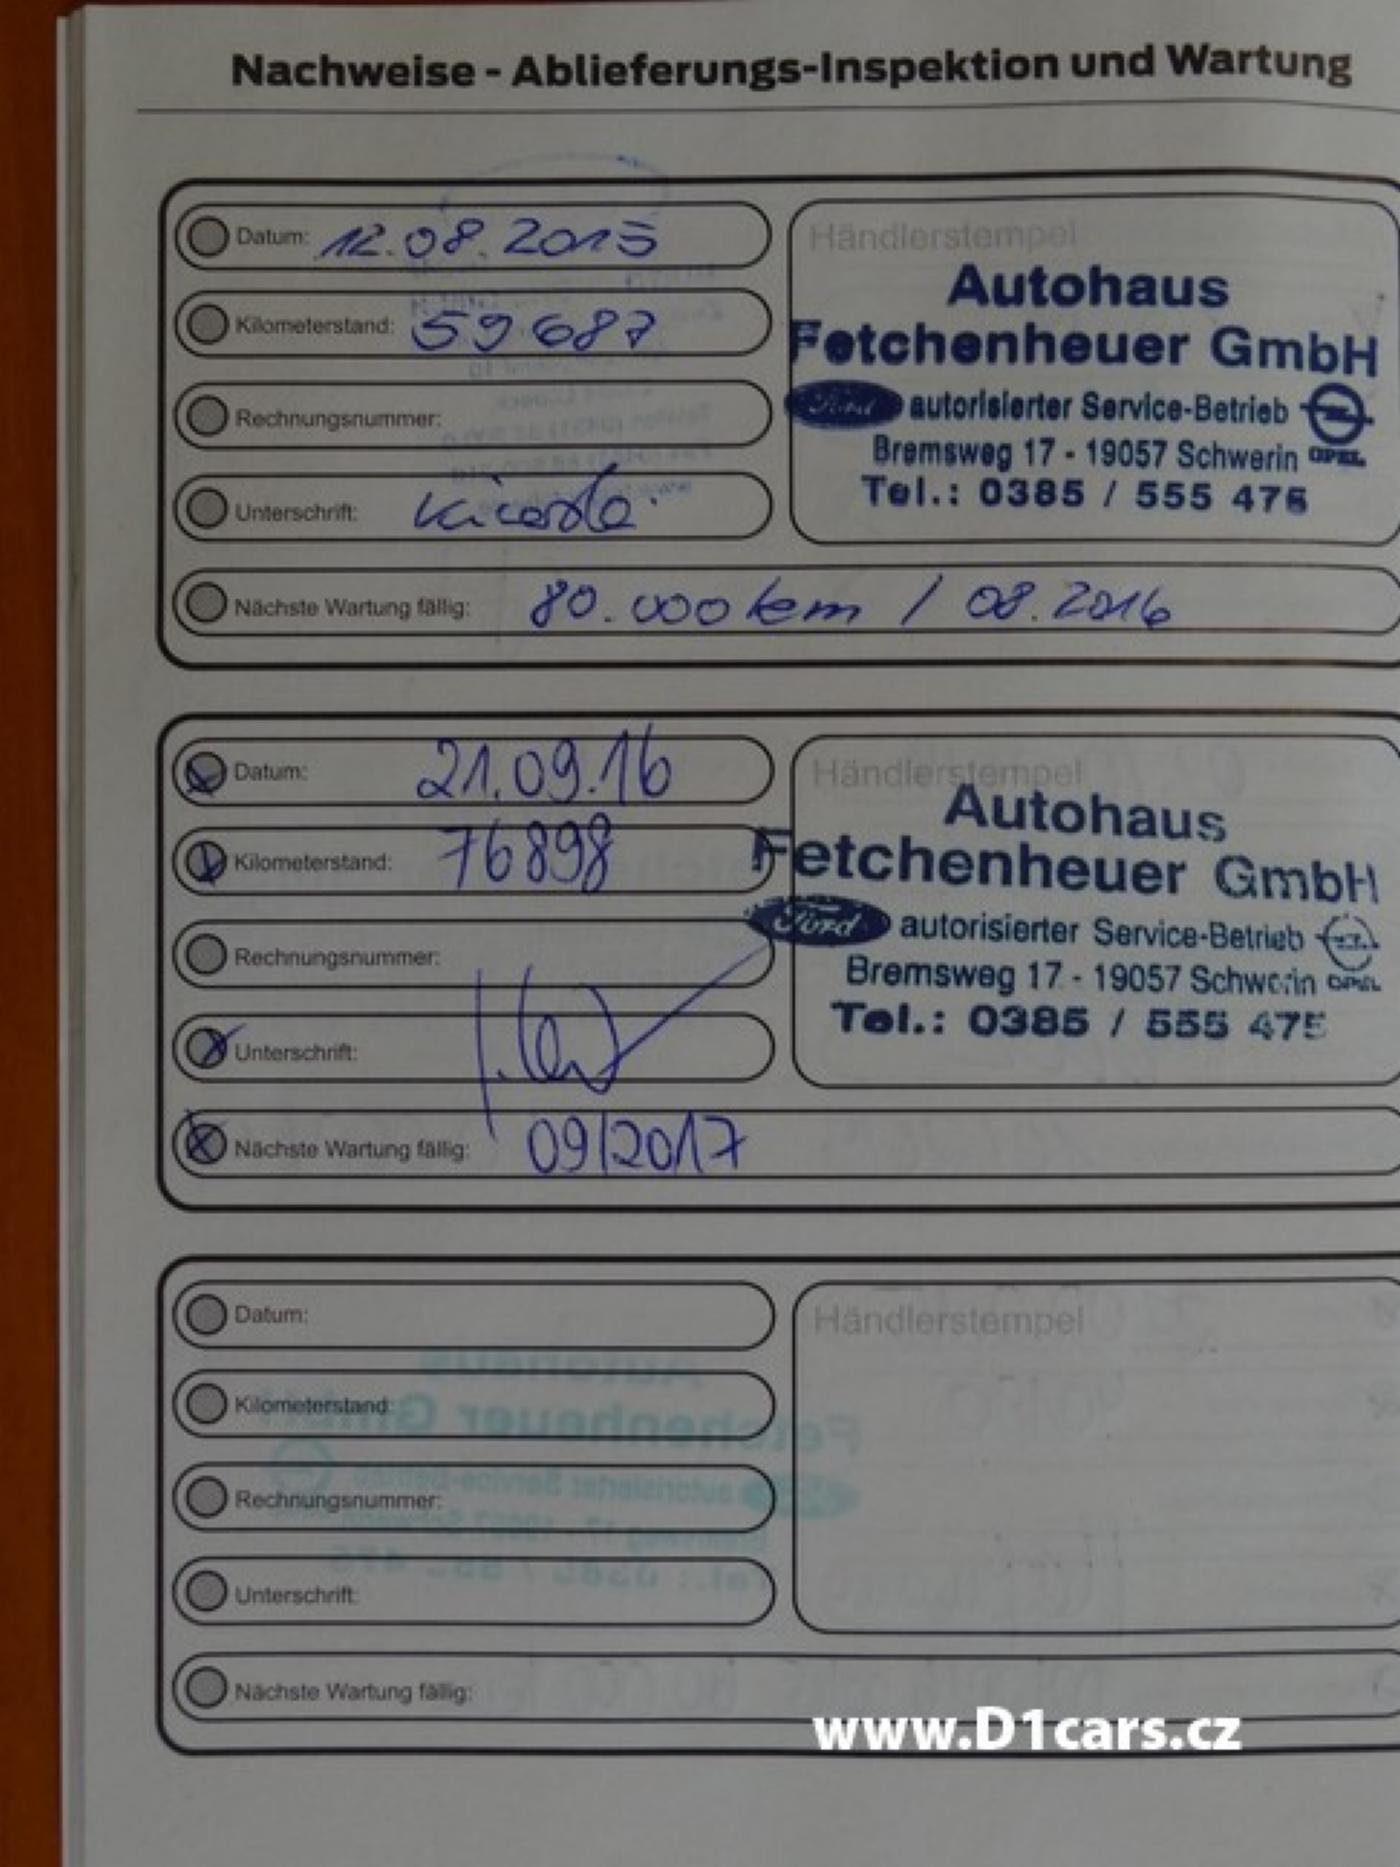 Nachweise - Ablieferungs-Inspektion und Wartung
Datum: 12.08.2015
Kilometerstand: 59687
Rechnungsnummer:
Unterschrift:
Nächste Wartung fällig: 80.000 km / 08.2016
Händlerstempel
Autohaus
Fetchenheuer GmbH
Ford autorisierter Service-Betrieb
Bremsweg 17 - 19057 Schwerin OPEL
Tel.: 0385 / 555 475
Datum: 21.09.16
Kilometerstand: 76898
Rechnungsnummer:
Unterschrift:
Nächste Wartung fällig: 09/2017
Händlerstempel
Autohaus
Fetchenheuer GmbH
Ford autorisierter Service-Betrieb
Bremsweg 17 - 19057 Schwerin OPEL
Tel.: 0385 / 555 475
Datum:
Kilometerstand:
Rechnungsnummer:
Unterschrift:
Nächste Wartung fällig:
Händlerstempel
www.D1cars.cz